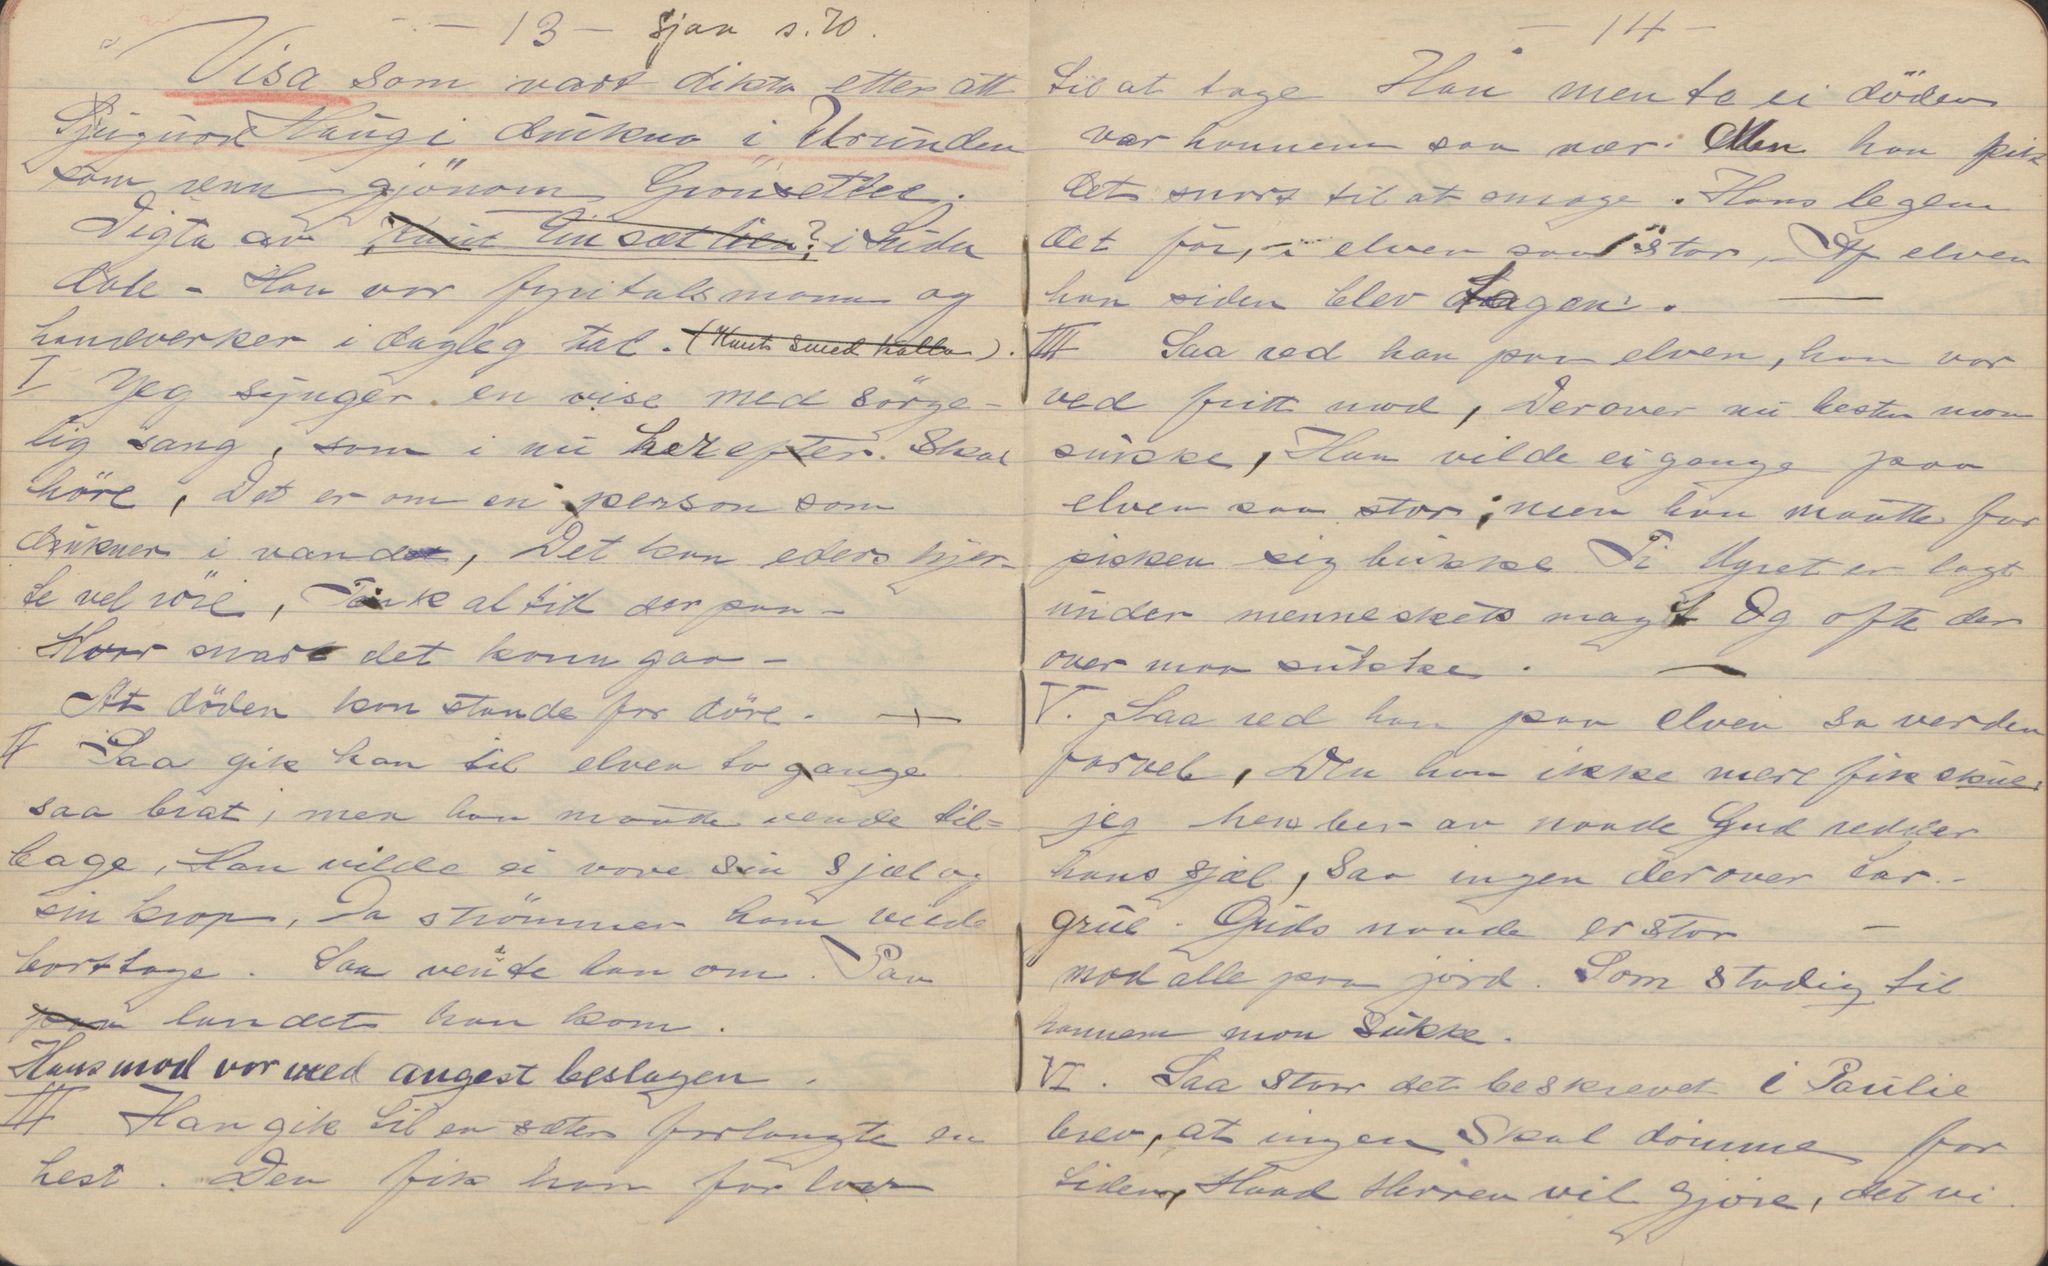 - 13 - sjaa s. 70.
Visa som vart dikta etter att
Sjugurd Haugi drukna i Urunden
som renn gjönom Grönsetlee.
Digta av Knut Einsætlien? i Suda
dale - Han var fyritalsmann og
handverker i dagleg tal. (Knut Smed kalla).
I Yeg synger en vise med sörge-
lig sang, som i nu herefter. Skal
höre, Det er om en person som
drukner i vandet, Det kan eders hjer-
te vel röre, Tænk altid der paa -
Hvor snart det kann gaa -
At döden kan stande for döre. -
II Saa gik han til elven to gange
saa brat, men han maatte vende til-
bage, Han vilde ei vove sin sjæl og
sin krop, Da strömmer ham vilde
borttage. Saa vendte han om. Paa
paa landet han kom.
Hans mod var med angest beslagen.
III Han gik til en sæter forlangte en
hest. Den fik han för lov
- 14 -
til at tage Han mente ei döden
var hannem saa nær. Men han fik
det snart til at smage. Hans legem
det för, i elven saa stor, Af elven
han siden blev tagen.
III Saa red han paa elven, han var
ved frit mod, Derover nu hesten mon
sukke, Han vilde ei gange paa
elven saa stor; men han maatte for
pisken sig bukke Ti dyret er lagt
under menneskets magt Og ofte der
over maa sukke.
V. Saa red han paa elven sa verden
farvel, Den han ikke mere fik skue.
jeg her ber av naade Gud redder
hans sjæl, Saa ingen derover tör -
grue. Guds naade er stor -
mod alle paa jord. Som stadig til
hannem mon Sukke.
VI. Saa staar det beskrevet i Paulie
brev, at ingen Skal dömme for
tiden, Hvad Herren vil gjöre, det vi